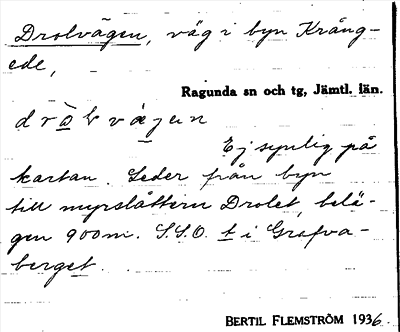 Drolvägen, väg i byn Krång-
ede,
Ragunda sn och tg, Jämtl. län.
dròlvägen
Ej synlig på
kartan. Leder från byn
till myrslåttern Drolet, belä-
gen 900m. S.S.O. t i Grafva-
berget.
BERTIL FLEMSTRÖM 1936.